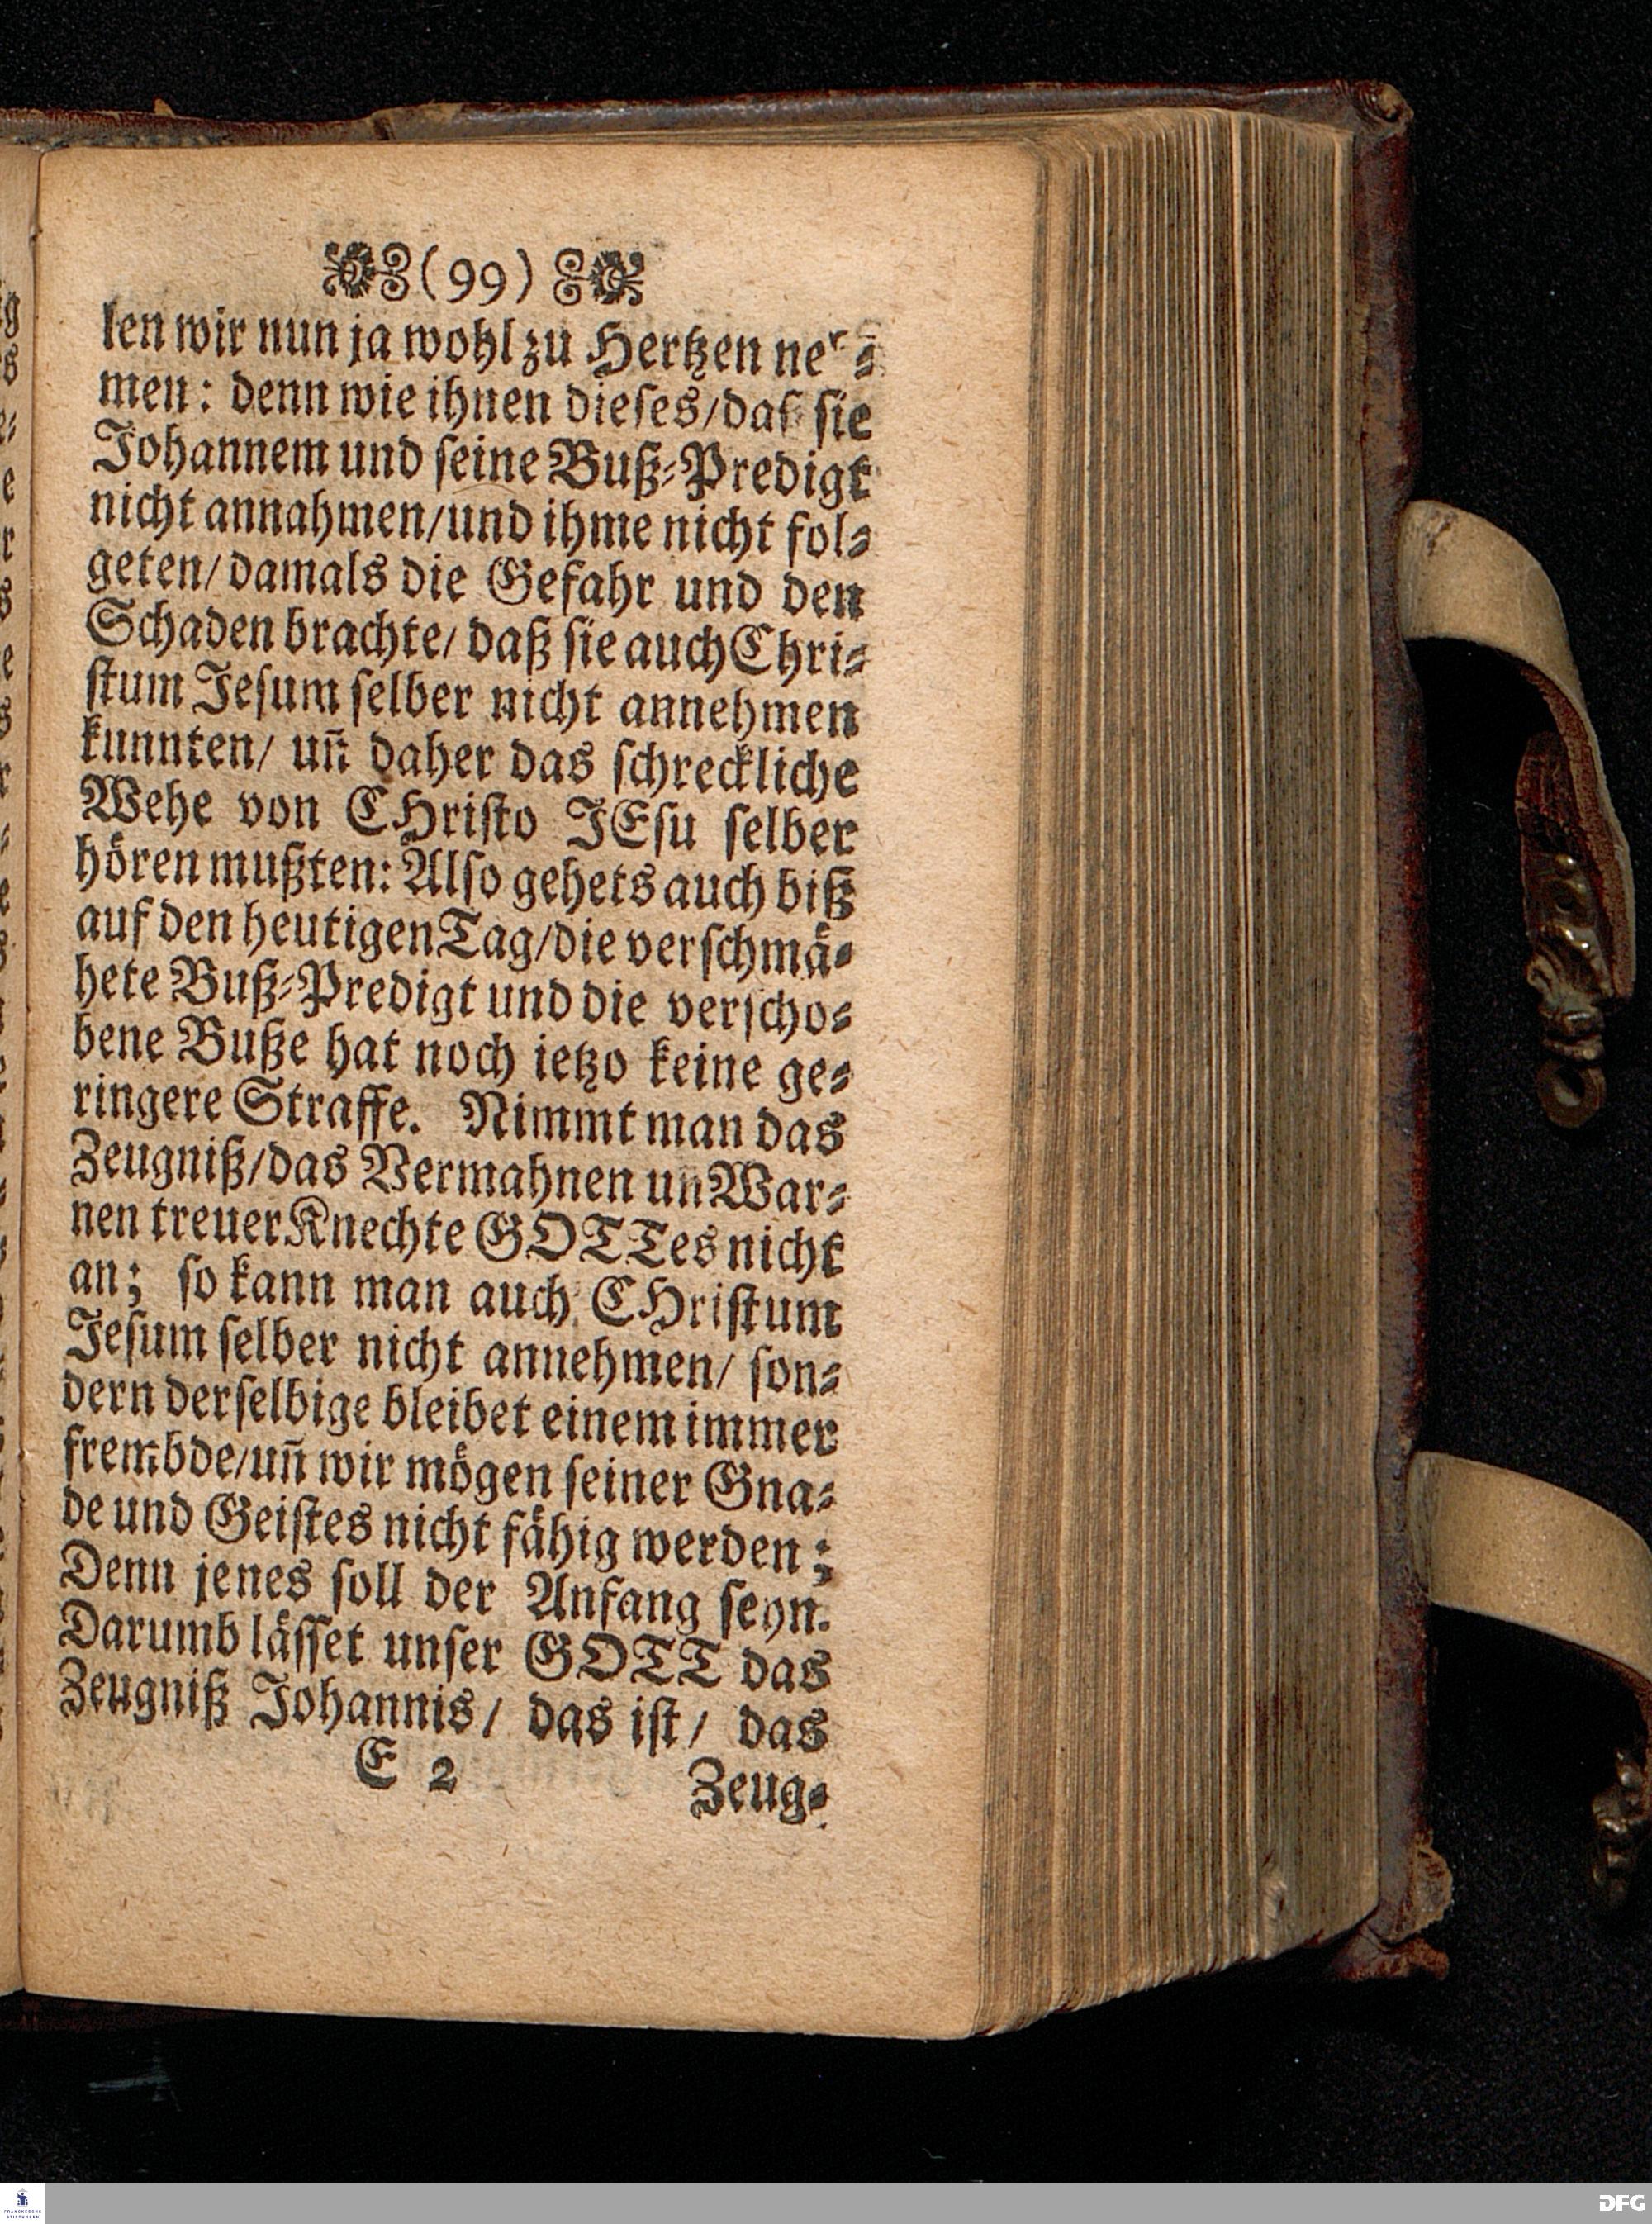 (99)
len wir nun ja wohl zu Hertzen neh⸗
men: denn wie ihnen dieses/daß sie
Johannem und seine Buß⸗Predigt
nicht annahmen/und ihme nicht fol⸗
geten/damals die Gefahr und den
Schaden brachte/ daß sie auch Chri⸗
stum Jesum selber nicht annehmen
kunnten/ un̄ daher das schreckliche
Wehe von CHristo JEsu selber
hören mußten: Also gehets auch biß
auf den heutigen Tag/die verschmä⸗
hete Buß⸗Predigt und die verscho⸗
bene Buße hat noch ietzo keine ge⸗
ringere Straffe. Nimmt man das
Zeugniß/das Vermahnen un War⸗
nen treuer Knechte GOTTes nicht
an; so kann man auch CHristum
Jesum selber nicht annehmen/ son⸗
dern derselbige bleibet einem immer
frembde/un̄ wir mögen seiner Gna⸗
de und Geistes nicht fähig werden;
Denn jenes soll der Anfang seyn.
Darumb lässet unser GOTT das
Zeugniß Johannis/ das ist/ das
E 2 Zeug⸗
FRANCKESCHE STIFTUNGEN
DFG